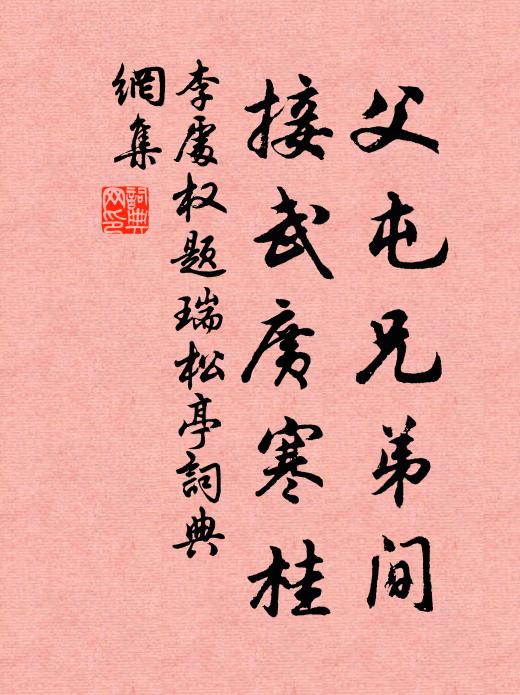 父屯兄弟间
接武广寒桂
李處权题瑞松亭詞典
網集
詞典
网印